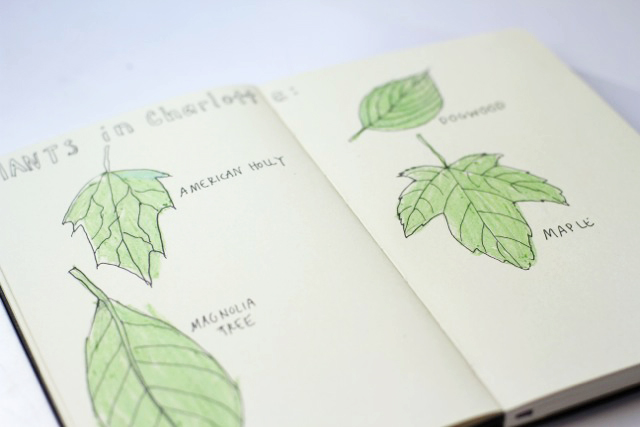 IANTS in Charlotte:
AMERICAN HOLLY
MAGNOLIA
TREE
DOGWOOD
MAPLE